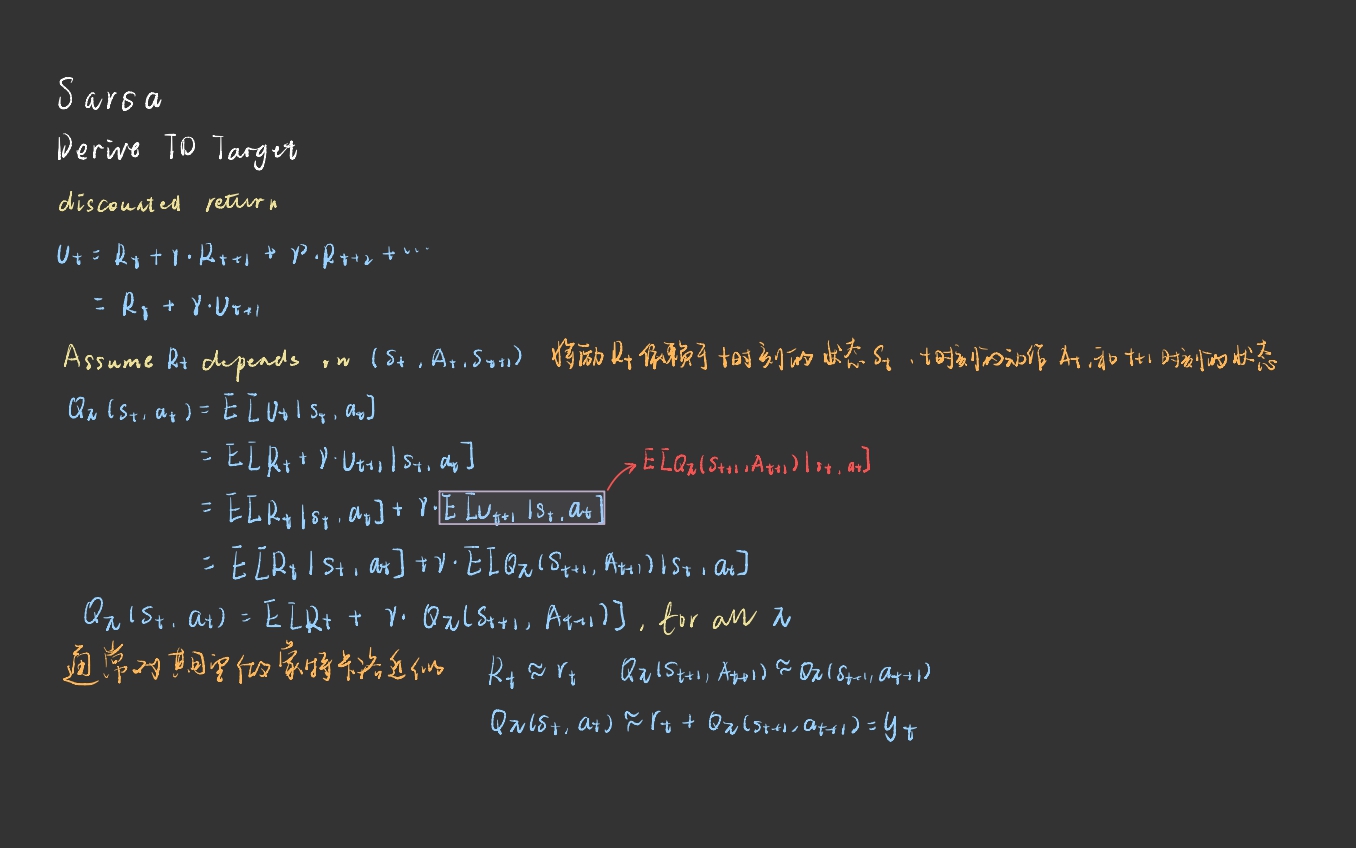 Sarsa
Derive TD Target
discounted return
U_t = R_t + γ·R_{t+1} + γ²·R_{t+2} + ···
= R_t + γ·U_{t+1}
Assume R_t depends on (S_t, A_t, S_{t+1}) 将励 R_t 依赖于 t时刻的状态 S_t、t时刻的动作 A_t,和 t+1 时刻的状态
Q_π(s_t, a_t) = E[U_t | s_t, a_t]
= E[R_t + γ·U_{t+1} | s_t, a_t]
E[Q_π(S_{t+1}, A_{t+1}) | s_t, a_t]
= E[R_t | s_t, a_t] + γ·E[U_{t+1} | s_t, a_t]
= E[R_t | s_t, a_t] + γ·E[Q_π(S_{t+1}, A_{t+1}) | s_t, a_t]
Q_π(s_t, a_t) = E[R_t + γ·Q_π(S_{t+1}, A_{t+1})], for all π
通常对期望做蒙特卡洛近似 R_t ≈ r_t Q_π(S_{t+1}, A_{t+1}) ≈ Q_π(s_{t+1}, a_{t+1})
Q_π(s_t, a_t) ≈ r_t + Q_π(s_{t+1}, a_{t+1}) = y_t